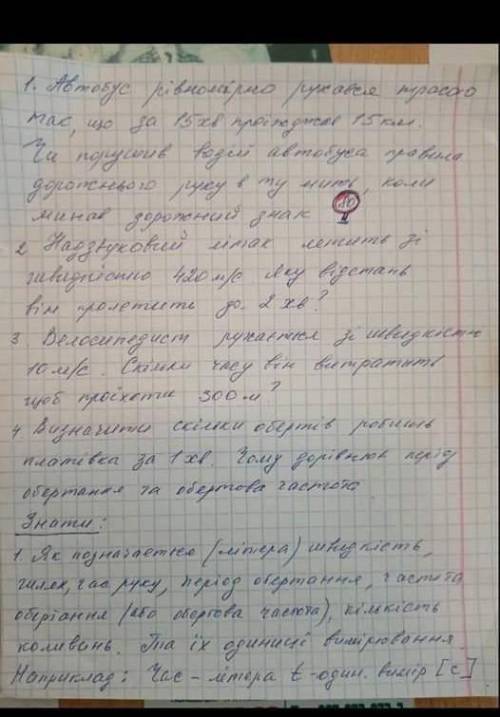 1. Автобус рівномірно рухався трасою
так, що за 15хв проїжджав 15км.
Чи порушив водій автобуса правила
дорожнього руху в ту мить, коли
минав дорожний знак
2 Надзвуковий літак летить зі
швидкістю 420м/с Яку відстань
він пролетить до 2хв?
3 Велосипедист рухається зі швидкістю
10м/с. Скільки часу він витратить
щоб проїхати 300м?
4 Визначити скільки обертів робить
платівка за 1хв. Чому дорівнює період
обертання та обертова частота
Знати:
1. Як позначається (літера) швидкість,
шлях, час руху, період обертання, частота
обертання (або обертова частота), кількість
коливань. Та їх одиниці вимірювання
Наприклад: Час – літера t – один. вимір [с]